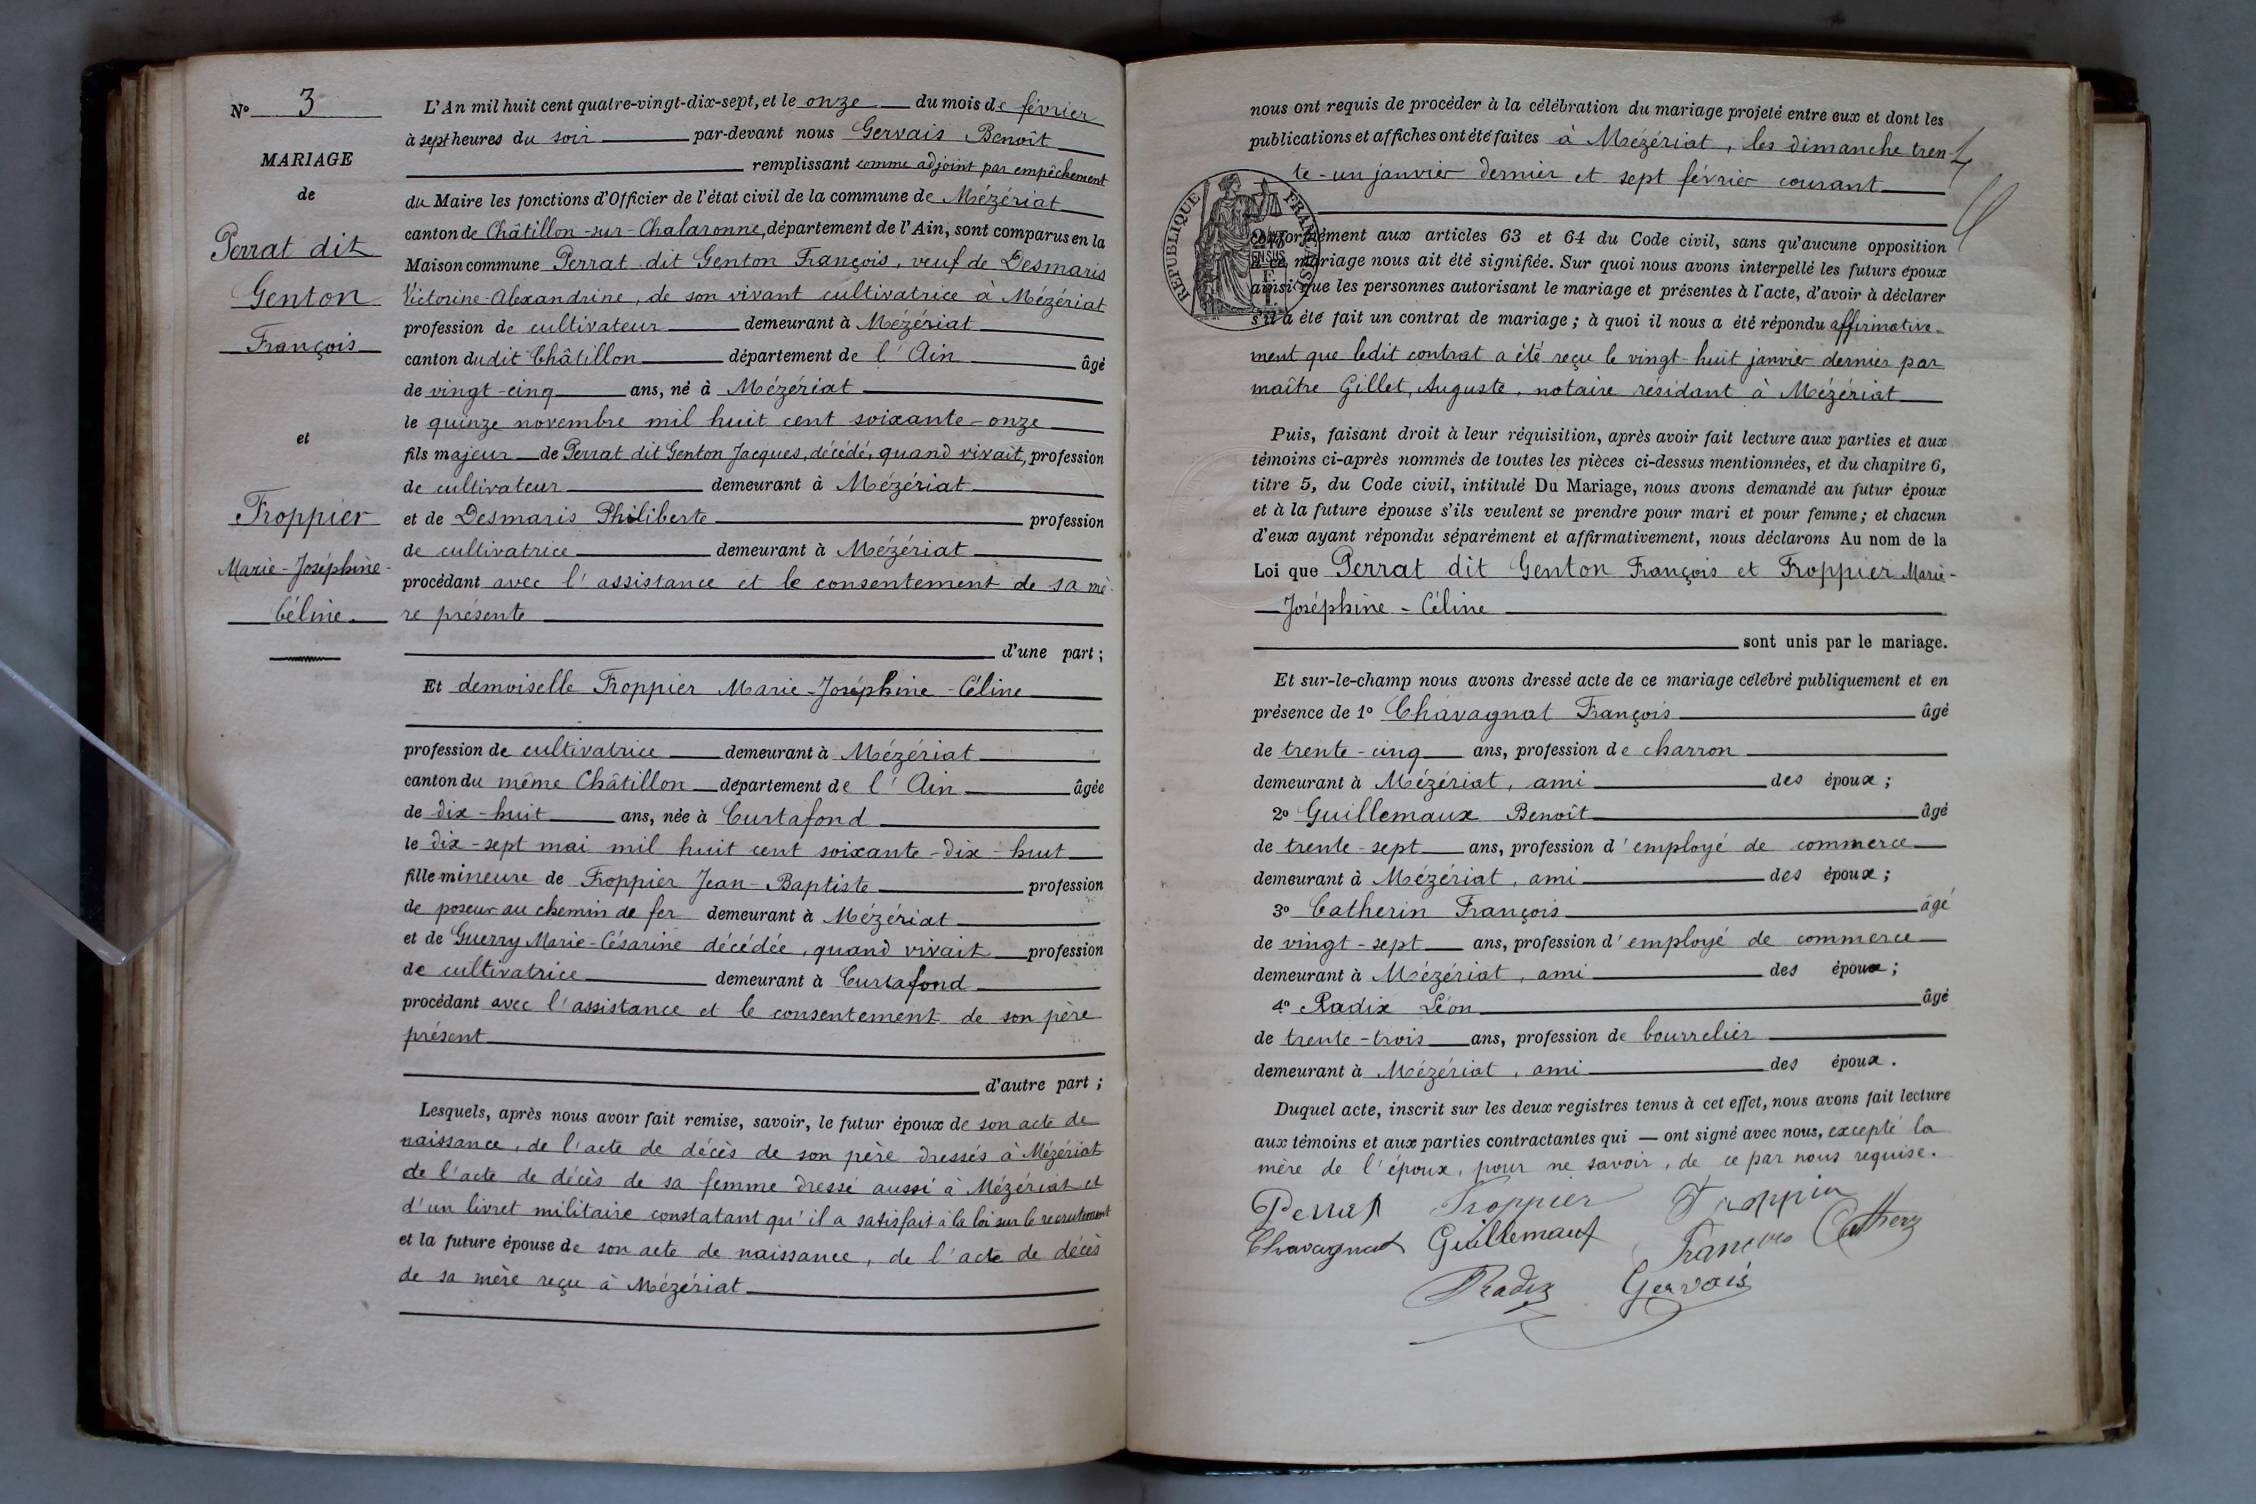 N° 3
MARIAGE
de
Perrat dit
Genton
François
et
Froppier
Marie-Joséphine-
Céline.
L'An mil huit cent quatre-vingt-dix-sept, et le onze du mois de février
à sept heures du soir par-devant nous Gervais Benoît
remplissant comme adjoint par empêchement
du Maire les fonctions d'Officier de l'état civil de la commune de Mézériat
canton de Châtillon-sur-Chalaronne, département de l'Ain, sont comparus en la
Maison commune Perrat dit Genton François, veuf de Desmaris
Victorine-Alexandrine, de son vivant cultivatrice à Mézériat
profession de cultivateur demeurant à Mézériat
canton dudit Châtillon département de l'Ain âgé
de vingt-cinq ans, né à Mézériat
le quinze novembre mil huit cent soixante-onze
fils majeur de Perrat dit Genton Jacques, décédé, quand vivait, profession
de cultivateur demeurant à Mézériat
et de Desmaris Philiberte profession
de cultivatrice demeurant à Mézériat
procédant avec l'assistance et le consentement de sa mè-
re présente
d'une part ;
Et demoiselle Froppier Marie-Joséphine-Céline
profession de cultivatrice demeurant à Mézériat
canton du même Châtillon département de l'Ain âgée
de dix-huit ans, née à Curtafond
le dix-sept mai mil huit cent soixante-dix-huit
fille mineure de Froppier Jean-Baptiste profession
de poseur au chemin de fer demeurant à Mézériat
et de Guerry Marie-Césarine décédée, quand vivait profession
de cultivatrice demeurant à Curtafond
procédant avec l'assistance et le consentement de son père
présent
d'autre part ;
Lesquels, après nous avoir fait remise, savoir, le futur époux de son acte de
naissance, de l'acte de décès de son père dressés à Mézériat
de l'acte de décès de sa femme dressé aussi à Mézériat et
d'un livret militaire constatant qu'il a satisfait à la loi sur le recrutement
et la future épouse de son acte de naissance, de l'acte de décès
de sa mère reçu à Mézériat
nous ont requis de procéder à la célébration du mariage projeté entre eux et dont les
publications et affiches ont été faites à Mézériat, les dimanche tren-
te-un janvier dernier et sept février courant
RÉPUBLIQUE FRANÇAISE
conformément aux articles 63 et 64 du Code civil, sans qu'aucune opposition
à ce mariage nous ait été signifiée. Sur quoi nous avons interpellé les futurs époux
ainsi que les personnes autorisant le mariage et présentes à l'acte, d'avoir à déclarer
s'il a été fait un contrat de mariage ; à quoi il nous a été répondu affirmative-
ment que ledit contrat a été reçu le vingt-huit janvier dernier par
maître Gillet, Auguste, notaire résidant à Mézériat
Puis, faisant droit à leur réquisition, après avoir fait lecture aux parties et aux
témoins ci-après nommés de toutes les pièces ci-dessus mentionnées, et du chapitre 6,
titre 5, du Code civil, intitulé Du Mariage, nous avons demandé au futur époux
et à la future épouse s'ils veulent se prendre pour mari et pour femme ; et chacun
d'eux ayant répondu séparément et affirmativement, nous déclarons Au nom de la
Loi que Perrat dit Genton François et Froppier Marie-
Joséphine-Céline
sont unis par le mariage.
Et sur-le-champ nous avons dressé acte de ce mariage célébré publiquement et en
présence de 1° Chavagnat François âgé
de trente-cinq ans, profession de charron
demeurant à Mézériat, ami des époux ;
2° Guillemaux Benoît âgé
de trente-sept ans, profession d'employé de commerce
demeurant à Mézériat, ami des époux ;
3° Catherin François âgé
de vingt-sept ans, profession d'employé de commerce
demeurant à Mézériat, ami des époux ;
4° Radix Léon âgé
de trente-trois ans, profession de bourrelier
demeurant à Mézériat, ami des époux.
Duquel acte, inscrit sur les deux registres tenus à cet effet, nous avons fait lecture
aux témoins et aux parties contractantes qui — ont signé avec nous, excepté la
mère de l'époux, pour ne savoir, de ce par nous requise.
Perrat Froppier Froppier
Chavagnat Guillemaux François Catherin
Radix Gervais